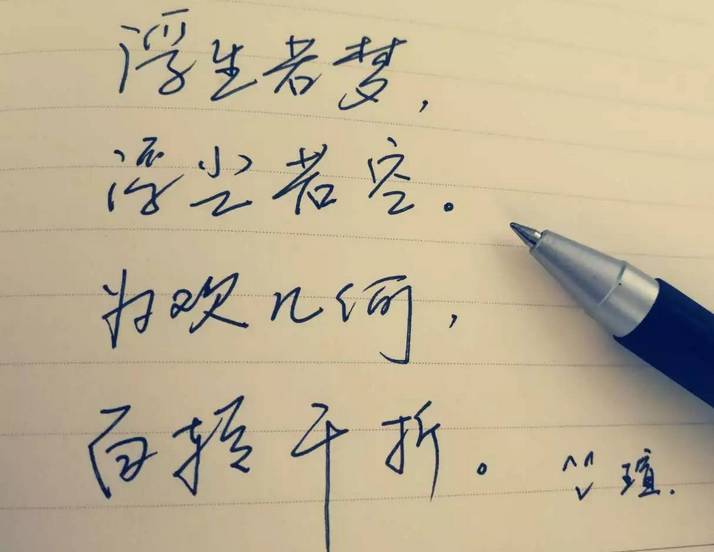 浮生若梦,
浮尘若空。
为欢几何,
百转千折。
瑄.